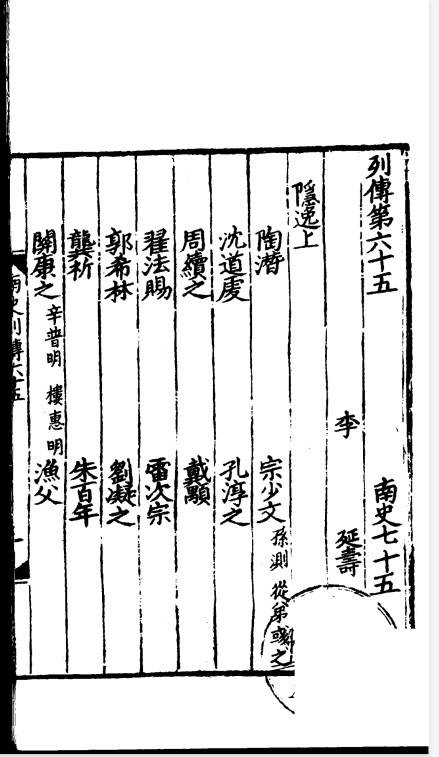 列傳第六十五 南史七十五
李 延壽
隱逸上
陶潛 宗少文 孫測 從弟彧之
沈道虔 孔淳之
周續之 戴顒
翟法賜 雷次宗
郭希林 劉凝之
龔祈 朱百年
關康之 辛普明 樓惠明 漁父
南史列傳六十五